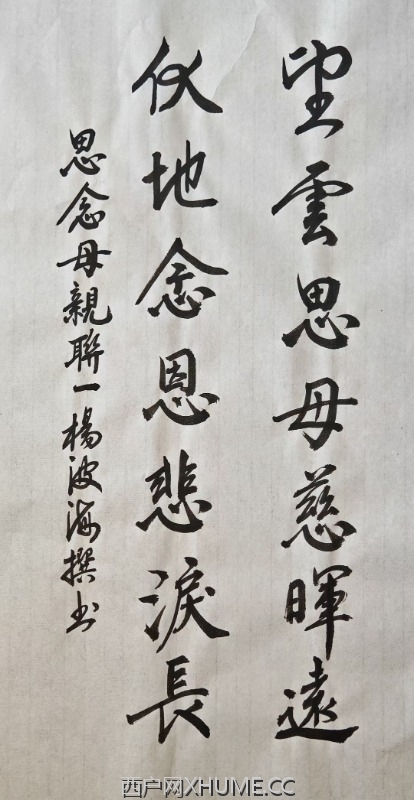 望雲思母慈暉遠
伏地念恩悲淚長
思念母親聯一楊波海撰书
西户网XHUME.CC